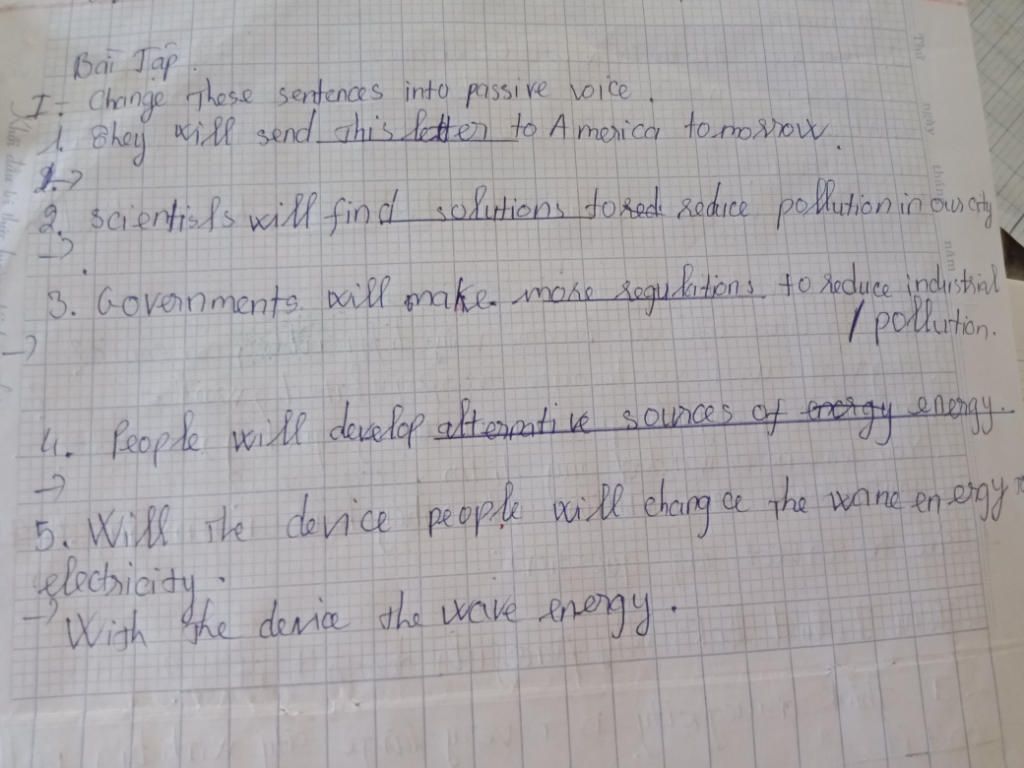 Bài Tập.
I - Change These sentences into passive voice.
1. They will send this letter to America tomorrow.
1. →
2. Scientists will find solutions to red reduce pollution in our city
→
3. Governments will make more regulations to reduce industrial
/ pollution.
→
4. People will develop alternative sources of energy energy.
→
5. Will the device people will change the wave energy
electricity.
→ With the device the wave energy.
Thứ ngày tháng năm